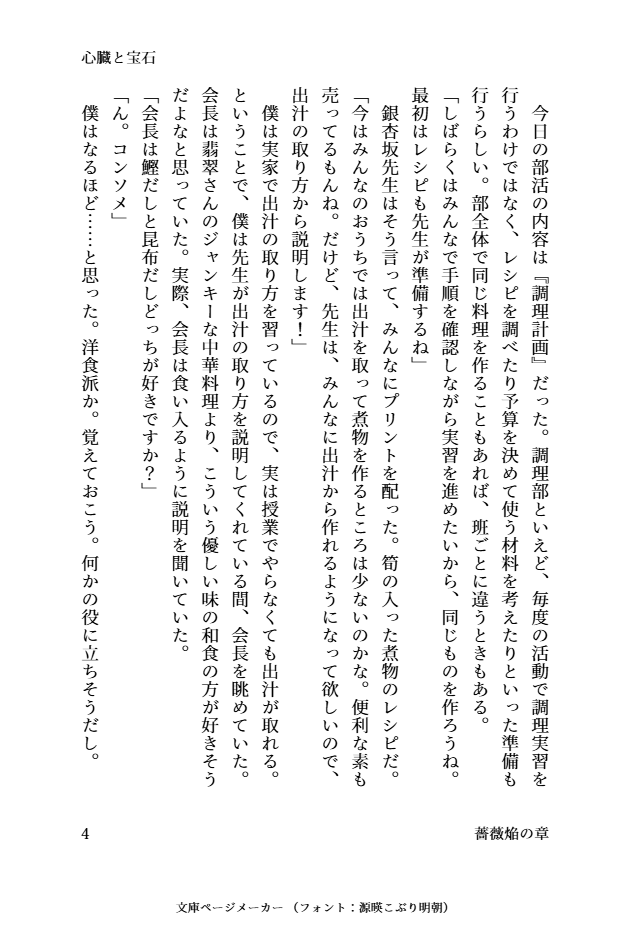 心臓と宝石
　今日の部活の内容は『調理計画』だった。調理部といえど、毎度の活動で調理実習を
行うわけではなく、レシピを調べたり予算を決めて使う材料を考えたりといった準備も
行うらしい。部全体で同じ料理を作ることもあれば、班ごとに違うときもある。
「しばらくはみんなで手順を確認しながら実習を進めたいから、同じものを作ろうね。
最初はレシピも先生が準備するね」
　銀杏坂先生はそう言って、みんなにプリントを配った。筍の入った煮物のレシピだ。
「今はみんなのおうちでは出汁を取って煮物を作るところは少ないのかな。便利な素も
売ってるもんね。だけど、先生は、みんなに出汁から作れるようになって欲しいので、
出汁の取り方から説明します！」
　僕は実家で出汁の取り方を習っているので、実は授業でやらなくても出汁が取れる。
ということで、僕は先生が出汁の取り方を説明してくれている間、会長を眺めていた。
会長は翡翠さんのジャンキーな中華料理より、こういう優しい味の和食の方が好きそう
だよなと思っていた。実際、会長は食い入るように説明を聞いていた。
「会長は鰹だしと昆布だしどっちが好きですか？」
「ん。コンソメ」
　僕はなるほど……と思った。洋食派か。覚えておこう。何かの役に立ちそうだし。
薔薇焔の章
4
文庫ページメーカー（フォント：源暎こぶり明朝）